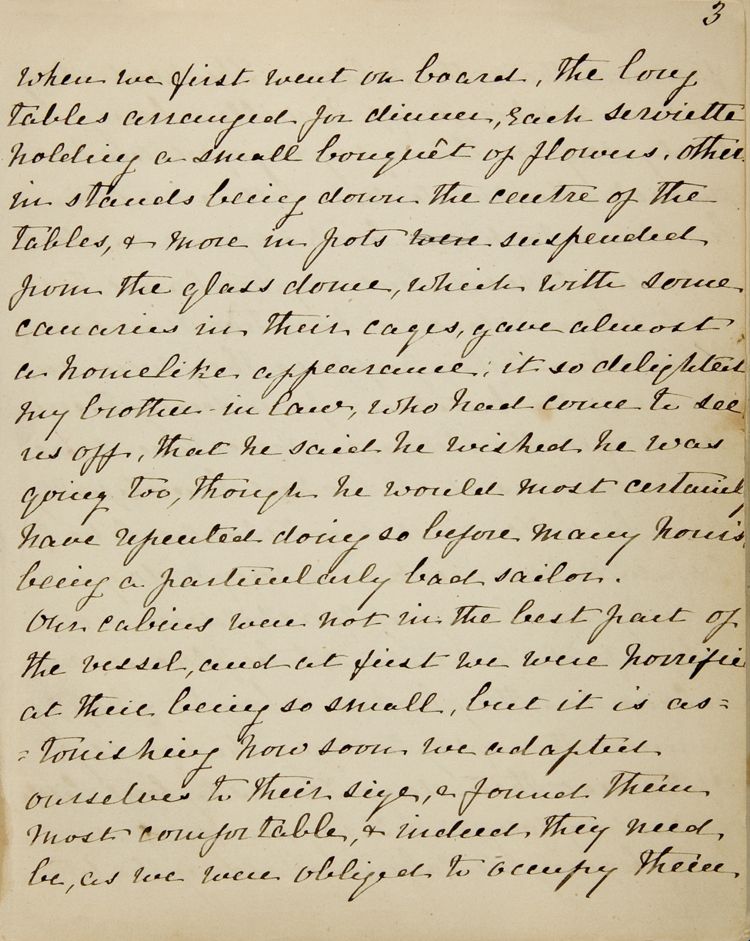 3
When we first went on board, the long
tables arranged for dinner, each serviette
holding a small bouquêt of flowers, other
in stands being down the centre of the
tables, & more in pots were suspended
from the glass dome, which with some
canaries in their cages, gave almost
a homelike appearance; it so delighted
my brother-in-law, who had come to see
us off, that he said he wished he was
going too, though he would most certainly
have repented doing so before many hours
being a particularly bad sailor.
Our cabins were not in the best part of
the vessel, and at first we were horrifie
at their being so small, but it is as=
=tonishing how soon we adapted
ourselves to their size, & found them
most comfortable, & indeed they need
be, as we were obliged to occupy them